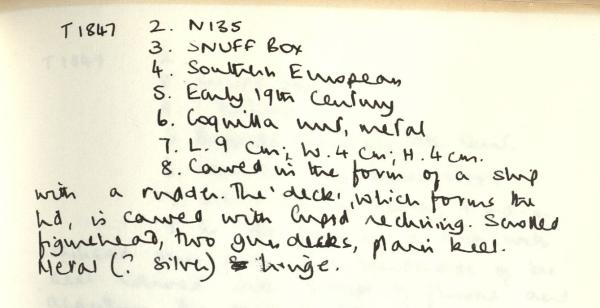 T1847 2. N135
3. SNUFF BOX
4. Southern European
5. Early 19th Century
6. Coquilla nut, metal
7. L. 9 cm; W. 4 cm; H. 4 cm.
8. Carved in the form of a ship
with a rudder. The 'deck', which forms the
lid, is carved with Cupid reclining. Scrolled
figurehead, two gun decks, plain keel.
Metal (? silver) hinge.